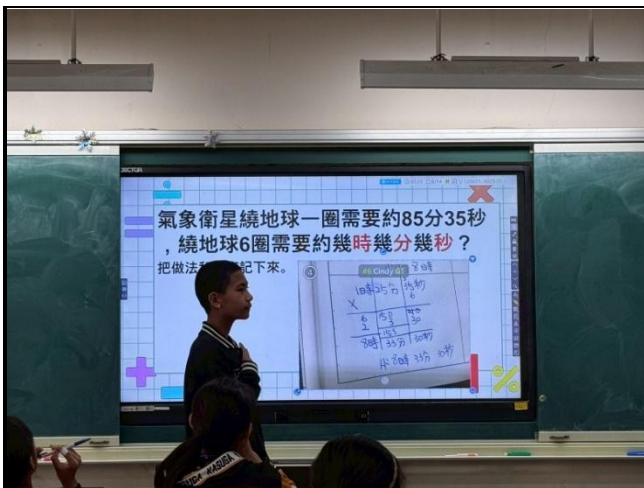 氣象衛星繞地球一圈需要約85分35秒
，繞地球6圈需要約幾時幾分幾秒？
把做法 記下來。
④
#6 Cindy G1
8時
1時25分 35秒
X 6
6 150
2 3 30
153
8時 33分 30秒
A: 8時 33分 30秒